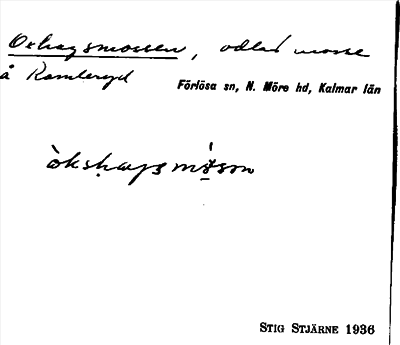 Oxhagsmossen, odlad mosse
å Ramleryd
Förlösa sn, N. Möre hd, Kalmar län
òkshags mósson
STIG STJÄRNE 1936